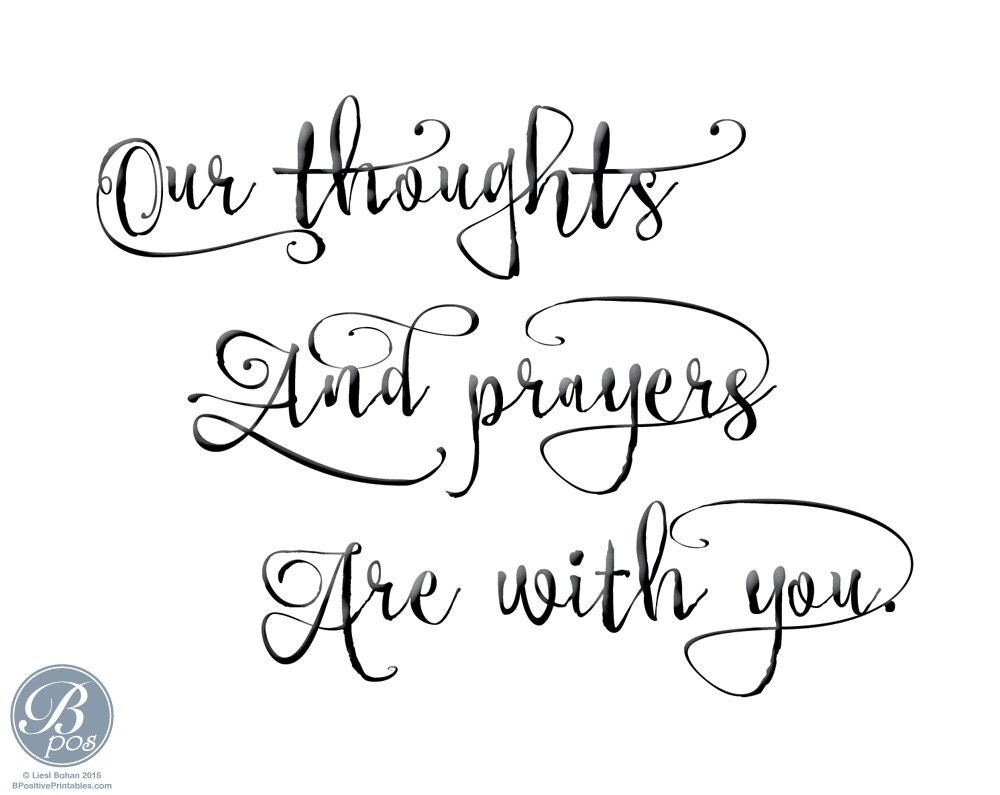 Our thoughts
And prayers
Are with you.
B
pos
© Liesl Bohan 2015
BPositivePrintables.com